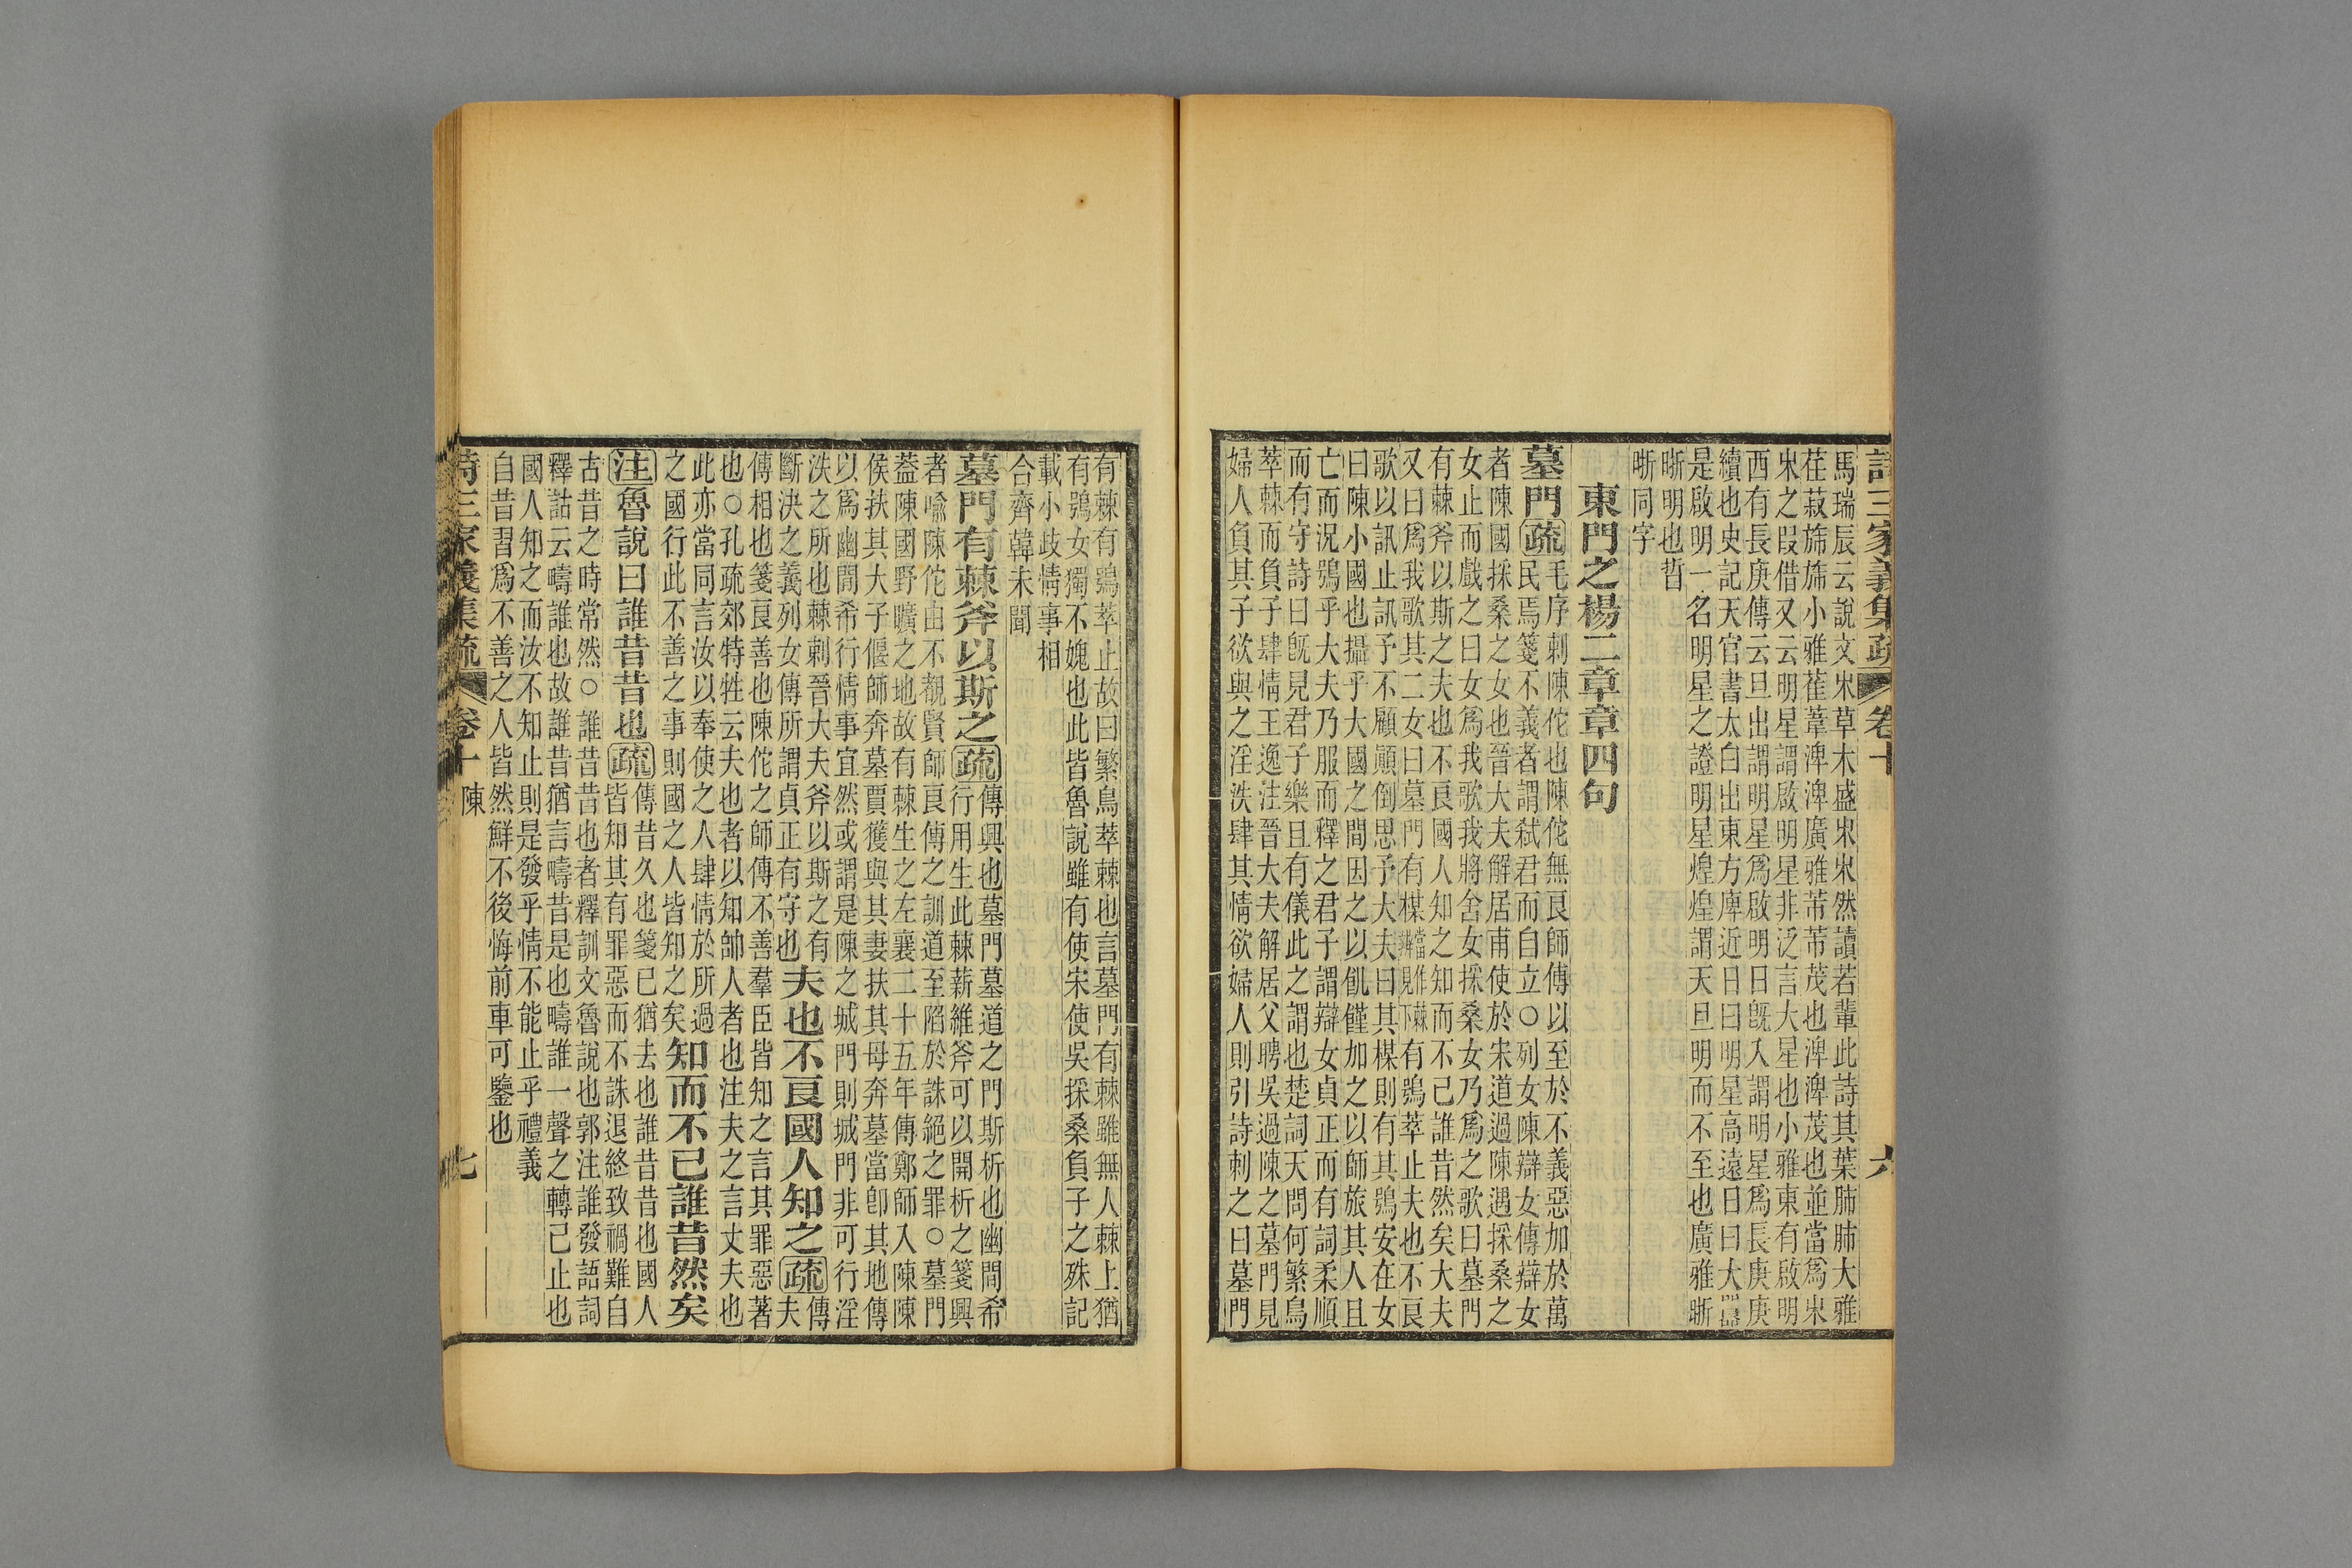 詩三家義集疏 卷十 六
馬瑞辰云說文𣎵草木盛𣎵𣎵然讀若輩此詩其葉肺肺大雅
荏菽旆旆小雅萑葦淠淠廣雅芾芾茂也淠淠茂也並當爲𣎵
𣎵之叚借又云明星謂啟明星非泛言大星也小雅東有啟明
西有長庚傳云旦出謂明星爲啟明日旣入謂明星爲長庚庚
續也史記天官書太白出東方庳近日曰明星高遠日曰大囂
是啟明一名明星之證明星煌煌謂天旦明而不至也廣雅晣
晣明也晢
晣同字
東門之楊二章章四句
墓門疏毛序刺陳佗也陳佗無良師傅以至於不義惡加於萬
民焉箋不義者謂弑君而自立○列女陳辯女傳辯女
者陳國採桑之女也晉大夫解居甫使於宋道過陳遇採桑之
女止而戲之曰女爲我歌我將舍女採桑女乃爲之歌曰墓門
有棘斧以斯之夫也不良國人知之知而不已誰昔然矣大夫
又曰爲我歌其二女曰墓門有楳當作棘辨見下有鴞萃止夫也不良
歌以訊止訊予不顧顚倒思予大夫曰其楳則有其鴞安在女
曰陳小國也攝乎大國之間因之以飢僅加之以師旅其人且
亡而況鴞乎大夫乃服而釋之君子謂辯女貞正而有詞柔順
而有守詩曰旣見君子樂且有儀此之謂也楚詞天問何繁鳥
萃棘而負子肆情王逸注晉大夫解居父聘吳過陳之墓門見
婦人負其子欲與之淫泆肆其情欲婦人則引詩刺之曰墓門
有棘有鴞萃止故曰繁鳥萃棘也言墓門有棘雖無人棘上猶
有鴞女獨不媿也此皆魯說雖有使宋使吳採桑負子之殊記
載小歧情事相
合齊韓未聞
墓門有棘斧以斯之疏傳興也墓門墓道之門斯析也幽間希
行用生此棘薪維斧可以開析之箋興
者喻陳佗由不覩賢師良傅之訓道至陷於誅絕之罪○墓門
蓋陳國野曠之地故有棘生之左襄二十五年傳鄭師入陳陳
侯扶其大子偃師奔墓賈獲與其妻扶其母奔墓當卽其地傳
以爲幽閒希行情事宜然或謂是陳之城門則城門非可行淫
泆之所也棘刺晉大夫斧以斯之有
斷決之義列女傳所謂貞正有守也夫也不良國人知之疏傳夫
傅相也箋良善也陳佗之師傅不善羣臣皆知之言其罪惡著
也○孔疏郊特牲云夫也者以知帥人者也注夫之言丈夫也
此亦當同言汝以奉使之人肆情於所過
之國行此不善之事則國之人皆知之矣知而不已誰昔然矣
注魯說曰誰昔昔也疏傳昔久也箋已猶去也誰昔昔也國人
皆知其有罪惡而不誅退終致禍難自
古昔之時常然○誰昔昔也者釋訓文魯說也郭注誰發語詞
釋詁云疇誰也故誰昔猶言疇昔是也疇誰一聲之轉已止也
國人知之而汝不知止則是發乎情不能止乎禮義
自昔習爲不善之人皆然鮮不後悔前車可鑒也
詩三家義集疏 卷十 陳 七